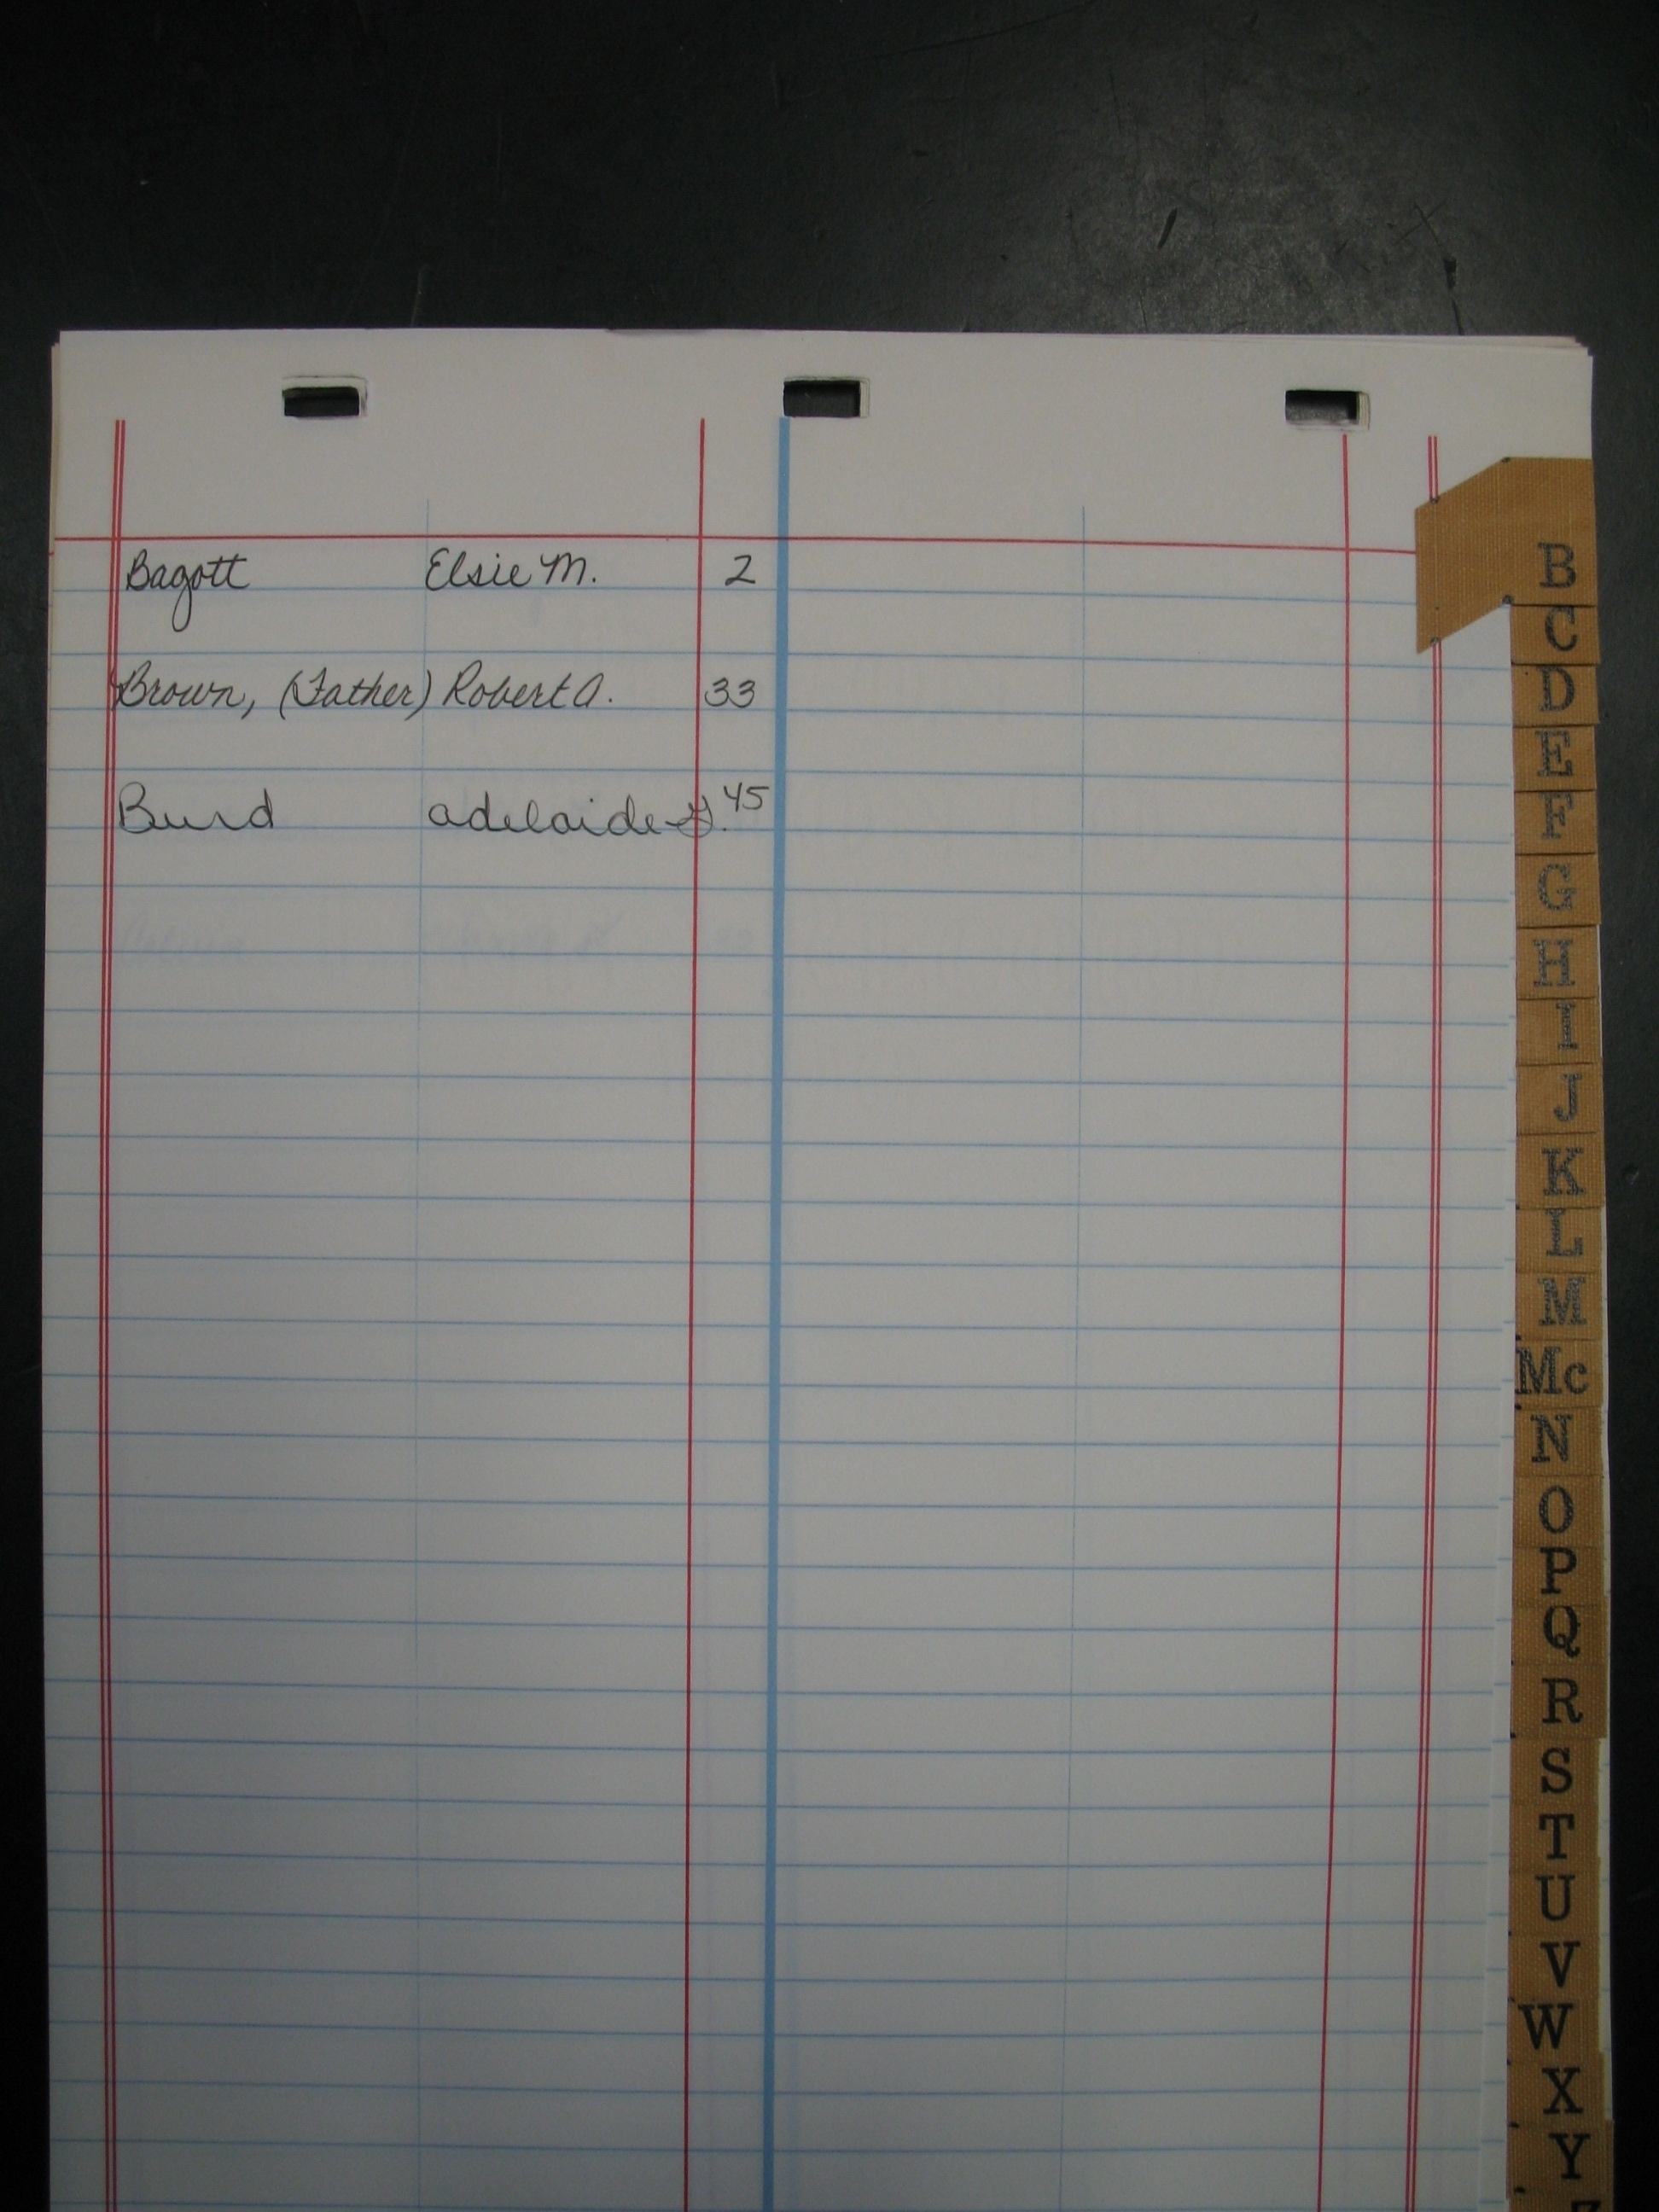 Bagott Elsie M. 2
Brown, (Father) Robert A. 33
Burd adelaide 45
B
C
D
E
F
G
H
I
J
K
L
M
Mc
N
O
P
Q
R
S
T
U
V
W
X
Y